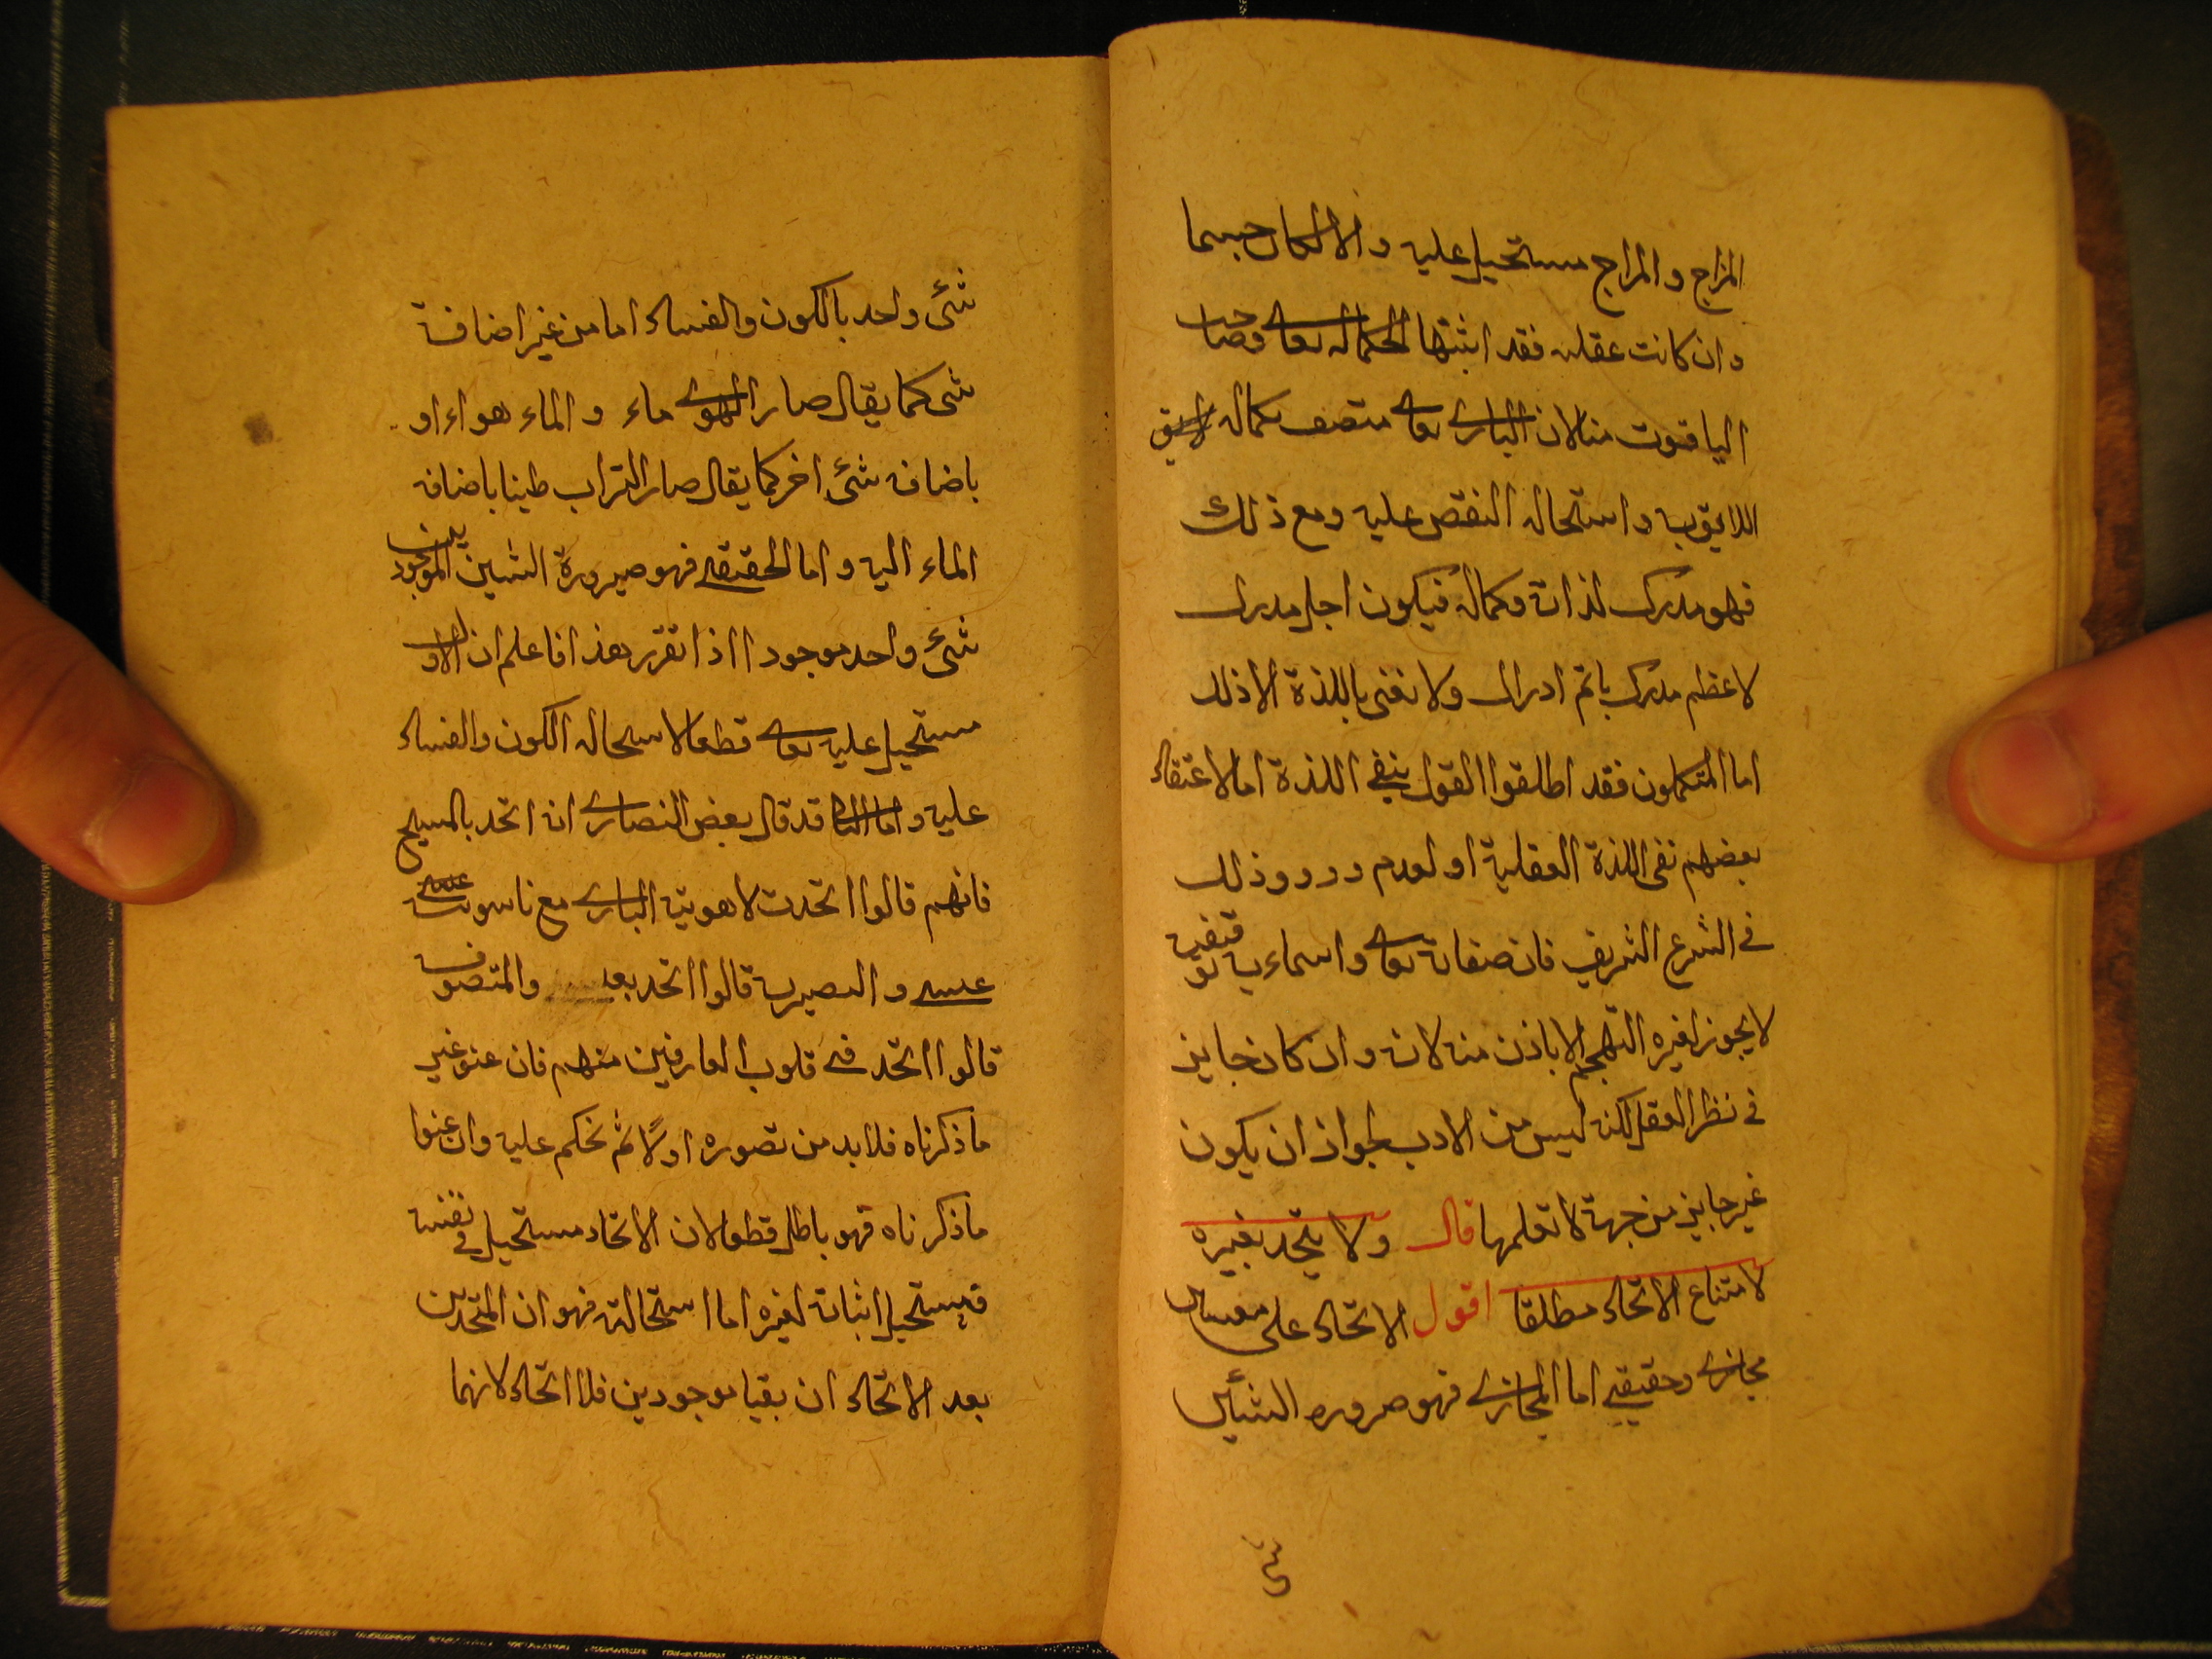 المزاج و المزاج مستحيل عليه و الا لكان جسما
و ان كانت عقليه فقد اثبتها الحكما له تعالى و صاحب
الياقوت منا لان البارى تعالى متصف بكماله لايق
اللايق به و استحاله النقص عليه و مع ذلك
فهو مدرك لذاته و كماله فيكون اجل مدرك
لاعظم مدرك باتم ادراك و لا نعنى باللذة الا ذلك
اما المتكلمون فقد اطلقوا القول بنفى اللذة اما لاعتقاد
بعضهم نفى اللذة العقلية او لعدم ورود ذلك
فى الشرع الشريف فان صفاته تعالى و اسماءيه توقيفيه
لا يجوز لغيره التهجم الا باذن منه لانه و ان كان جايز
فى نظر العقل لكنه ليس من الادب لجواز ان يكون
غير جايز من جهة لا نعلمها قال و لا يتحد بغيره
لامتناع الاتحاد مطلقا اقول الاتحاد على معنيين
مجازى و حقيقى اما المجازى فهو صروره الشيئين
شى
شئ واحد بالكون و الفساد اما من غير اضافة
شى كما يقال صار الهوى ماء و الماء هواء او
باضافه شئ اخر كما يقال صار التراب طينا باضافه
الماء اليه و اما الحقيقى فهو صيرورة الشيين الموجودين
شئ واحد موجودا اذا تقرر هذا فاعلم ان الاول
مستحيل عليه تعالى قطعا لاستحاله الكون و الفساد
عليه و اما الثانى قد قال بعض النصارى انه اتحد بالمسيح
فانهم قالوا اتحدت لاهوتية البارى مع ناسوت عيسى
عيسى و النصيريه قالوا اتحد بعد و المتصوفه
قالوا اتحد فى قلوب العارفين منهم فان عنو غير
ما ذكرناه فلا بد من تصوره اولا ثم نحكم عليه و ان عنوا
ما ذكرناه فهو باطل قطعا لان الاتحاد مستحيل فى نفسه
فيستحيل اثباته لغيره اما استحالته فهو ان المتحدين
بعد الاتحاد ان بقيا موجودين فلا اتحاد لانهما